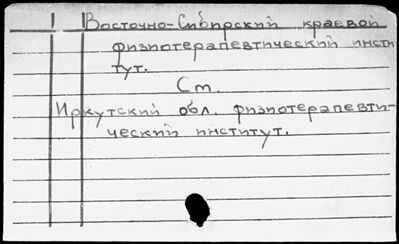 Восточно-Сибирский краевой
физиотерапевтический инсти
тут.
См.
Иркутский обл. физиотерапевти-
ческий институт.